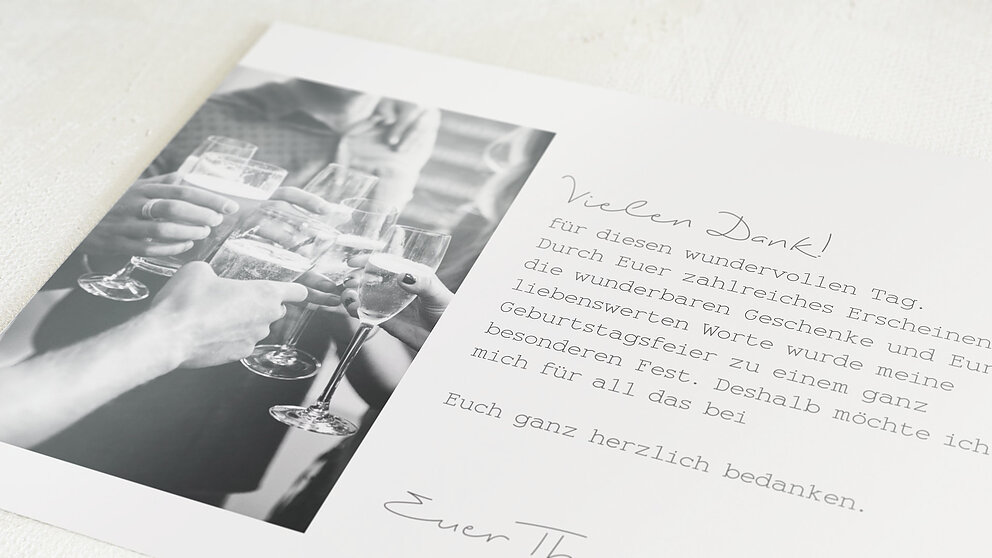 Vielen Dank!
für diesen wundervollen Tag.
Durch Euer zahlreiches Erscheinen
die wunderbaren Geschenke und
liebenswerten Worte wurde meine
Geburtstagsfeier zu einem ganz
besonderen Fest. Deshalb möchte ich
mich für all das bei
Euch ganz herzlich bedanken.
Euer